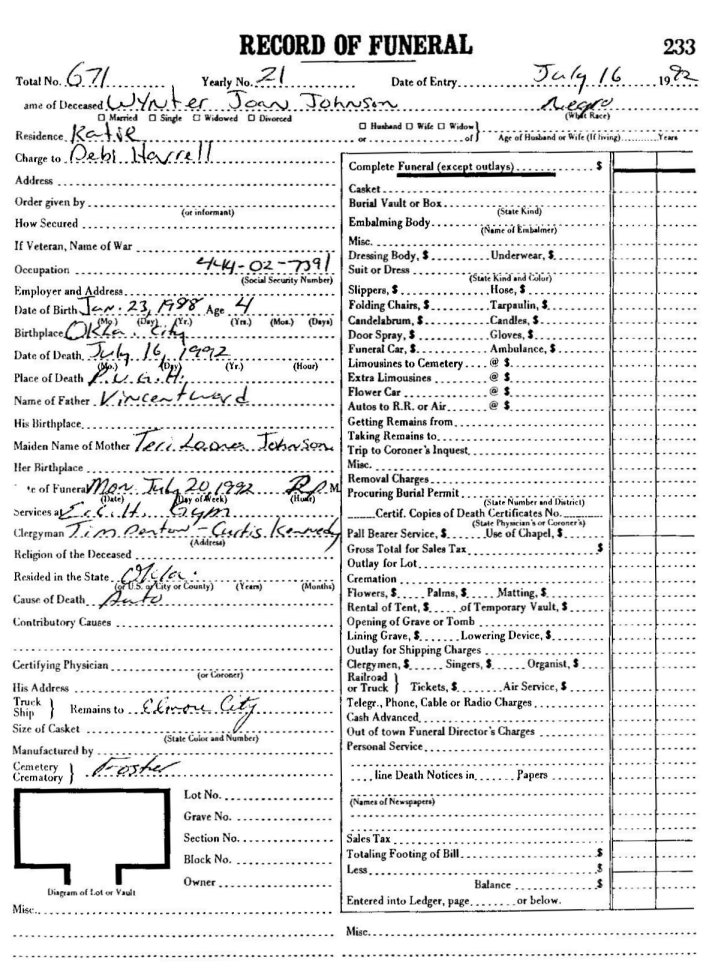 RECORD OF FUNERAL 233
Total No. 671 Yearly No. 21 Date of Entry July 16 1992
ame of Deceased Wynter Joan Johnson Negro
☐ Married ☐ Single ☐ Widowed ☐ Divorced (What Race)
Residence Katie
☐ Husband ☐ Wife ☐ Widow }
or of } Age of Husband or Wife (If living) Years
Charge to Debi Harrell
Address
Order given by
(or informant)
How Secured
If Veteran, Name of War
Occupation 444-02-7391
(Social Security Number)
Employer and Address
Date of Birth Jan. 23, 1988 Age 4
(Mo.) (Day) (Yr.) (Yrs.) (Mos.) (Days)
Birthplace Okla. City
Date of Death July 16, 1992
(Mo.) (Day) (Yr.) (Hour)
Place of Death P.V.G.H.
Name of Father Vincent Ward
His Birthplace
Maiden Name of Mother Teri Johnson
Her Birthplace
te of Funeral Mon. July 20, 1992 2 P M
(Date) (Day of Week) (Hour)
Services at E.C.H. Gym
Clergyman Tim Denton - Curtis Kennedy
(Address)
Religion of the Deceased
Resided in the State Okla.
(or U.S. or City or County) (Years) (Months)
Cause of Death Auto
Contributory Causes
Certifying Physician
(or Coroner)
His Address
Truck }
Ship } Remains to Elmore City
Size of Casket
(State Color and Number)
Manufactured by
Cemetery }
Crematory } Foster
Lot No.
Grave No.
Section No.
Block No.
Owner
Diagram of Lot or Vault
Misc.
Complete Funeral (except outlays) $
Casket
Burial Vault or Box
(State Kind)
Embalming Body
(Name of Embalmer)
Misc.
Dressing Body, $ Underwear, $
Suit or Dress
(State Kind and Color)
Slippers, $ Hose, $
Folding Chairs, $ Tarpaulin, $
Candelabrum, $ Candles, $
Door Spray, $ Gloves, $
Funeral Car, $ Ambulance, $
Limousines to Cemetery @ $
Extra Limousines @ $
Flower Car @ $
Autos to R.R. or Air @ $
Getting Remains from
Taking Remains to
Trip to Coroner's Inquest
Misc.
Removal Charges
Procuring Burial Permit
(State Number and District)
Certif. Copies of Death Certificates No.
(State Physician's or Coroner's)
Pall Bearer Service, $ Use of Chapel, $
Gross Total for Sales Tax $
Outlay for Lot
Cremation
Flowers, $ Palms, $ Matting, $
Rental of Tent, $ of Temporary Vault, $
Opening of Grave or Tomb
Lining Grave, $ Lowering Device, $
Outlay for Shipping Charges
Clergymen, $ Singers, $ Organist, $
Railroad }
or Truck } Tickets, $ Air Service, $
Telegr., Phone, Cable or Radio Charges
Cash Advanced
Out of town Funeral Director's Charges
Personal Service
line Death Notices in Papers
(Names of Newspapers)
Sales Tax
Totaling Footing of Bill $
Less $
Balance $
Entered into Ledger, page or below.
Misc.